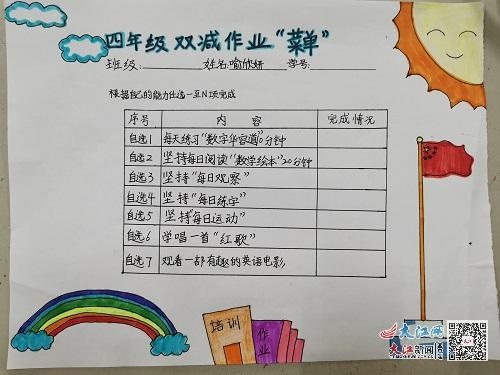 四年级双减作业“菜单”
班级: 姓名:喻欣妍 学号:
根据自己的能力任选一至N项完成
序号 内容 完成情况
自选1 每天练习“数字华容道”10分钟
自选2 坚持每日阅读“数学绘本”20分钟
自选3 坚持“每日观察”
自选4 坚持“每日练字”
自选5 坚持“每日运动”
自选6 学唱一首“红歌”
自选7 观看一部有趣的英语电影
培训
作业
大江网
大江新闻